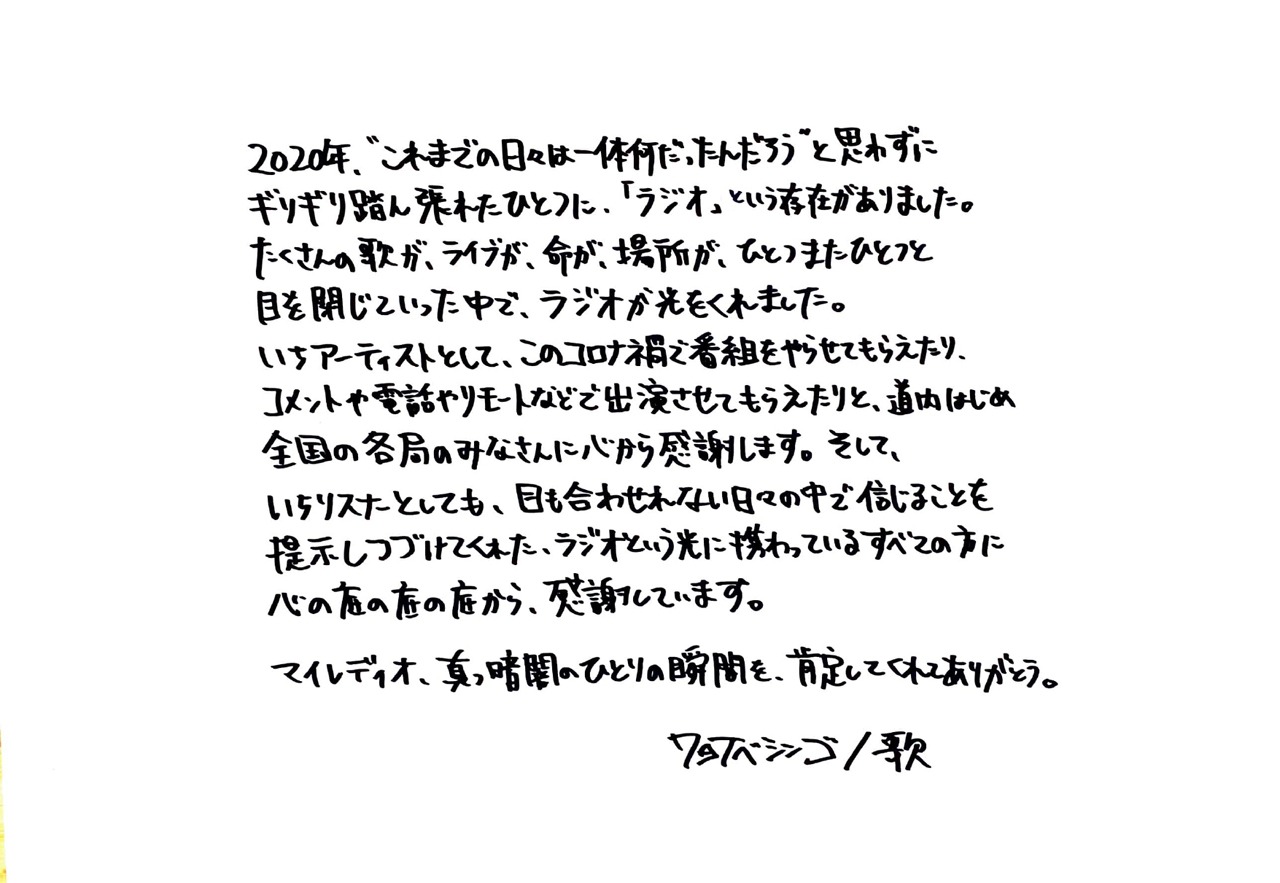 2020年、“これまでの日々は一体何だったんだろう”と思わずに
ギリギリ踏ん張れたひとつに、「ラジオ」という存在がありました。
たくさんの歌が、ライブが、命が、場所が、ひとつまたひとつと
目を閉じていった中で、ラジオが光をくれました。
いちアーティストとして、このコロナ禍で番組をやらせてもらえたり、
コメントや電話やリモートなどで出演させてもらえたりと、道内はじめ
全国の各局のみなさんに心から感謝します。そして、
いちリスナーとしても、目も合わせれない日々の中で信じることを
提示しつづけてくれた、ラジオという光に携わっているすべての方に
心の底の底の底から、感謝しています。
マイレディオ、真っ暗闇のひとりの瞬間を、肯定してくれてありがとう。
ワタベシンゴ/歌